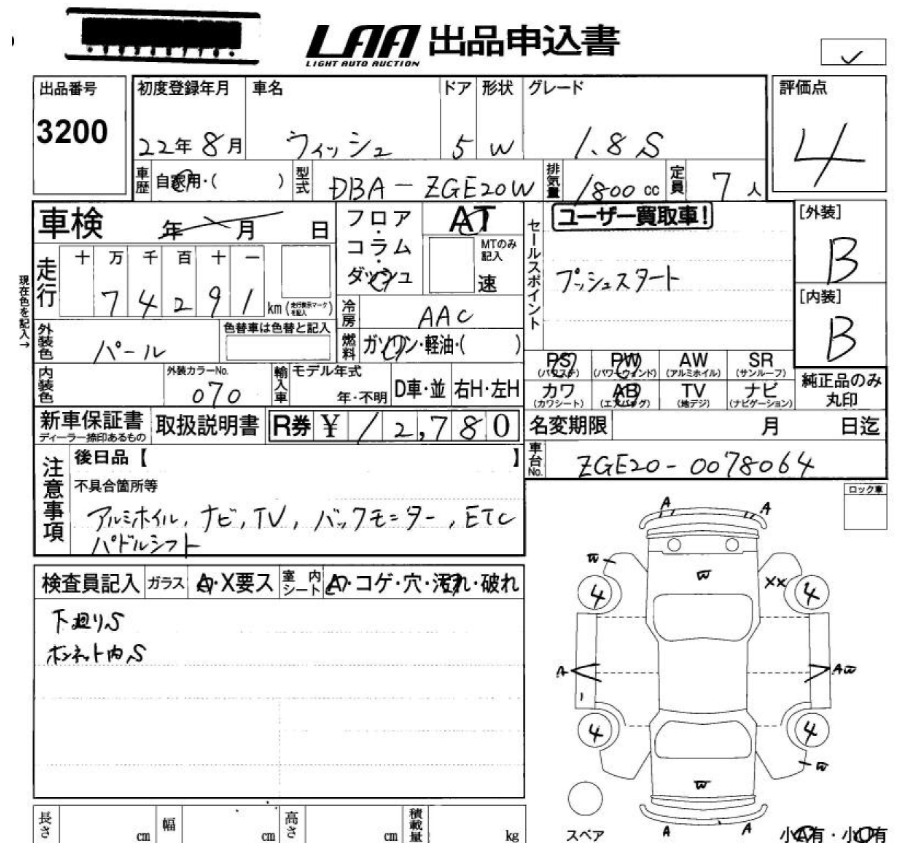 LAA 出品申込書
LIGHT AUTO AUCTION
出品番号 初度登録年月 車名 ドア 形状 グレード 評価点
3200 22年 8月 ウィッシュ 5 W 1.8S 4
車歴 自家用・( ) 型式 DBA-ZGE20W 排気量 1800 cc 定員 7人
車検 年 月 日 フロア・コラム・ダッシュ AT MTのみ記入 速
セールスポイント ユーザー買取車! [外装] B
プッシュスタート [内装] B
現在色を記入→
走行 十 万 千 百 十 一
7 4 2 9 1 km (走行表示マークを記入)
冷房 AAC
外装色 パール 色替車は色替と記入 燃料 ガソリン・軽油・( )
PS (パワステ) PW (パワーウィンド) AW (アルミホイル) SR (サンルーフ)
内装色 外装カラーNo. 070 輸入車 モデル年式 年・不明 D車・並 右H・左H
カワ (カワシート) AB (エアバッグ) TV (地デジ) ナビ (ナビゲーション) 純正品のみ丸印
新車保証書 ディーラー捺印あるもの 取扱説明書 R券 ¥12,780 名変期限 月 日迄
注意事項 後日品【 】 車台No. ZGE20-0078064
不具合箇所等 ロック車
アルミホイル, ナビ, TV, バックモニター, ETC
パドルシフト
検査員記入 ガラス A・X要ス 室内シート A・コゲ・穴・汚れ・破れ
下廻りS
ボンネット内S
A A
W W XX
4 4
A A W
4 4
W W
A A
スペア 小A有・小U有
長さ cm 幅 cm 高さ cm 積載量 kg